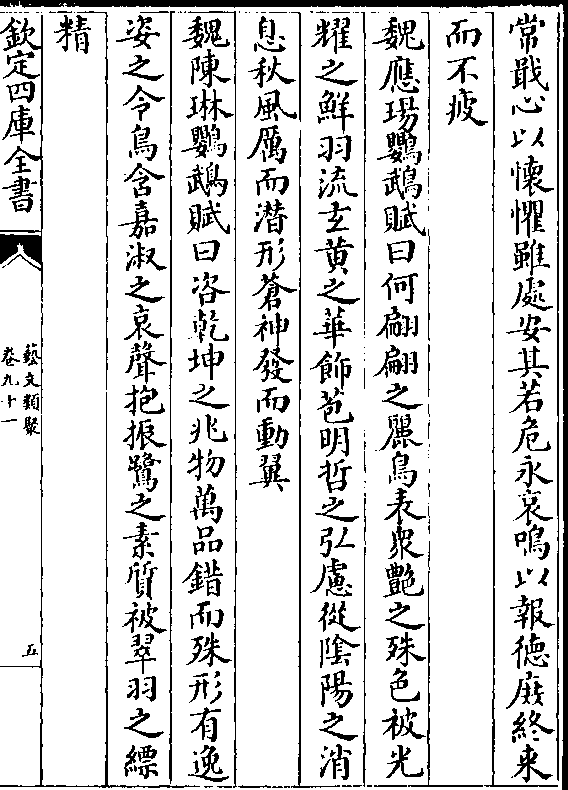 常戢心以懷懼雖處安其若危永哀鳴以報徳庻終来
而不疲
魏應瑒鸚鵡賦曰何翩翩之麗鳥表衆艶之殊色被光
耀之鮮羽流𤣥黄之華飾苞明哲之弘慮從陰陽之消
息秋風厲而潛形蒼神發而動翼
魏陳琳鸚鵡賦曰咨乾坤之兆物萬品錯而殊形有逸
姿之令鳥含嘉淑之哀聲抱振鷺之素質被翠羽之縹
精
欽定四庫全書
藝文類聚
卷九十一
五